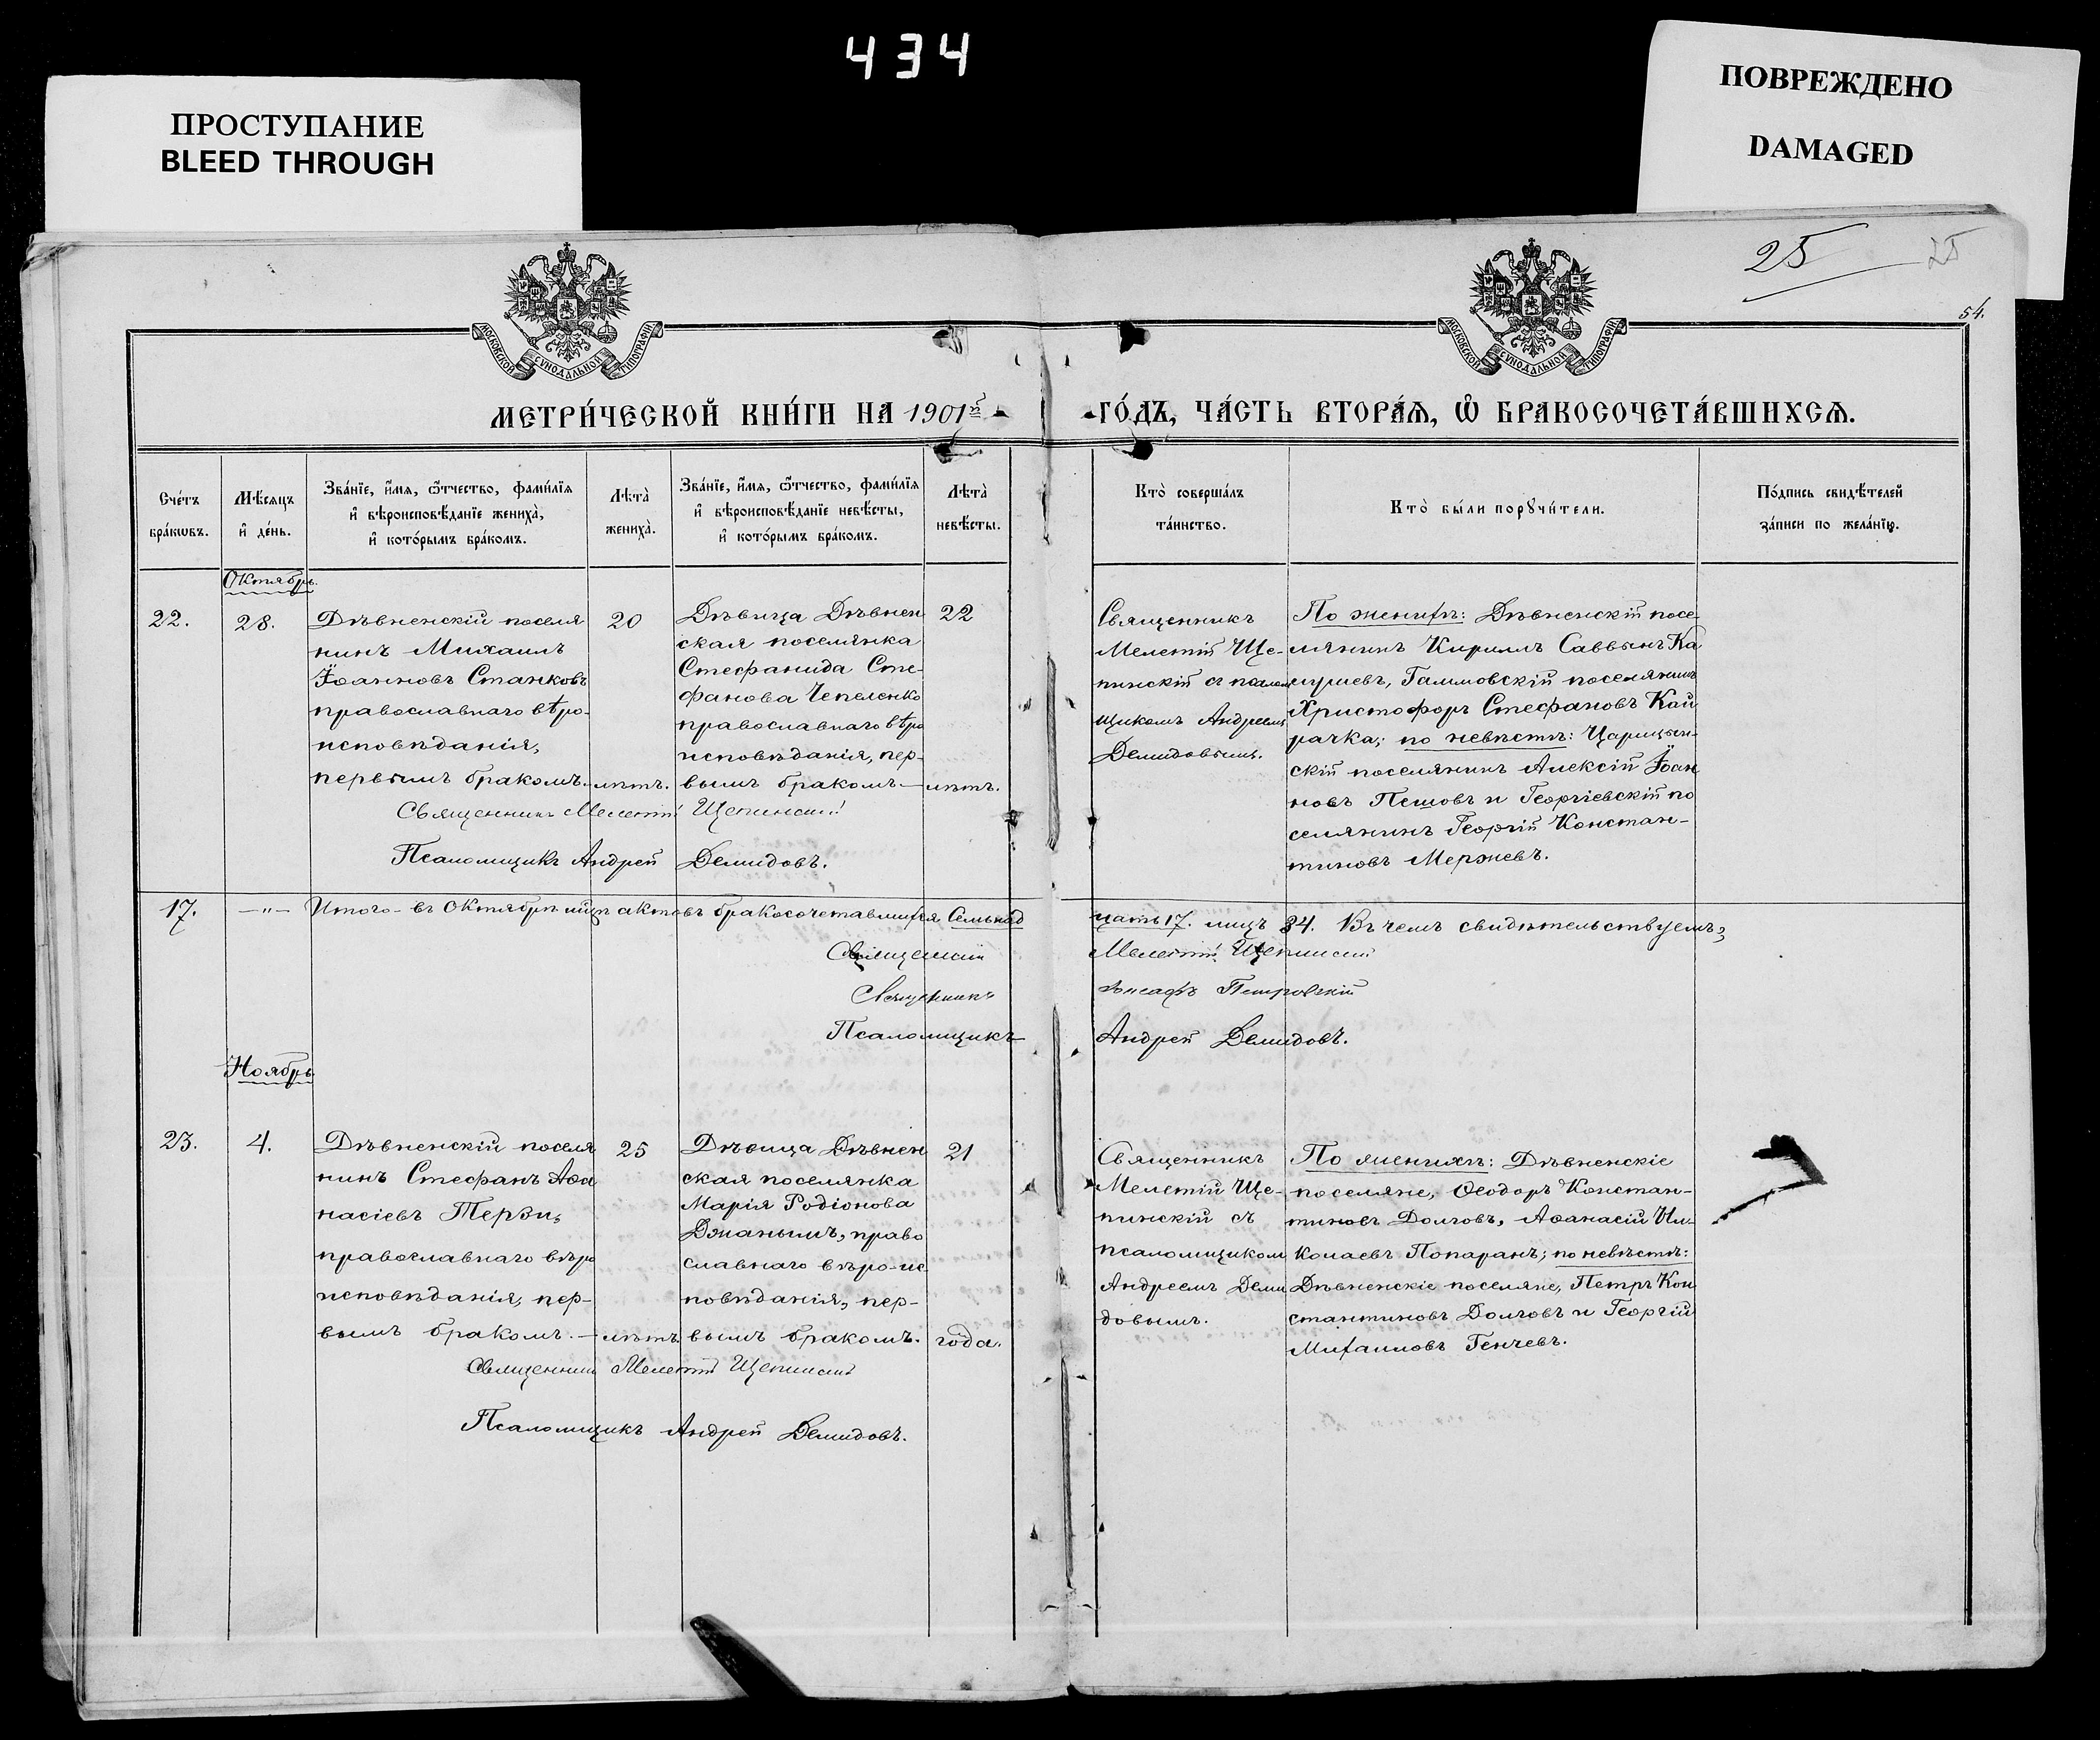 434
ПРОСТУПАНИЕ
BLEED THROUGH
ПОВРЕЖДЕНО
DAMAGED
25
25
54.
МОСКОВСКОЙ СѴНОДАЛЬНОЙ ТИПОГРАФІИ
МОСКОВСКОЙ СѴНОДАЛЬНОЙ ТИПОГРАФІИ
МЕТРИ́ЧЕСКОЙ КНИ́ГИ НА 1901й ГО́ДЪ, ЧА́СТЬ ВТОРА́Я, Ѽ БРАКОСОЧЕТА́ВШИХСѦ.
Сче́тъ
бра́кѡвъ.
Мѣ́сѧцъ
и҆ де́нь.
Зва́нїе, и҆́мѧ, ѻ҆́тчество, фами́лїѧ
и҆ вѣроисповѣ́данїе жениха̀,
и҆ кото́рымъ бра́комъ.
Лѣ́та̀
жениха̀.
Зва́нїе, и҆́мѧ, ѻ҆́тчество, фами́лїѧ
и҆ вѣроисповѣ́данїе невѣ́сты,
и҆ кото́рымъ бра́комъ.
Лѣ́та̀
невѣ́сты.
Кто̀ соверша́лъ
та́инство.
Кто̀ бы́ли порꙋчи́тели.
По́дпись свидѣ́телей
за́писи по жела́нїю.
Октябрь.
22.
28.
Дѣвненскій поселя
нинъ Михаилъ
Іоанновъ Станковъ
православнаго вѣро-
исповѣданія,
первымъ бракомъ.
20
лѣтъ.
Дѣвица Дѣвнен
ская поселянка
Стефанида Сте-
фанова Чепеленко
православнаго вѣро
исповѣданія, пер-
вымъ бракомъ
22
лѣтъ.
Священникъ
Мелетій Ще-
пинскій съ псалом
щикомъ Андреемъ
Демидовымъ.
По женихѣ: Дѣвненскій посе-
лянинъ Кириллъ Саввинъ Ка
лушевъ, Галиловскій поселянинъ
Христофоръ Стефановъ Кай
рачка; по невѣстѣ: Царицын-
скій поселянинъ Алексій Іоан
новъ Пешовъ и Георгіевскій по
селянинъ Георгій Констан-
тиновъ Мержевъ.
Священникъ Мелетій Щепинскій
Псаломщикъ Андрей Демидовъ.
17. —"— Итого- въ Октябрѣ мцѣ актовъ бракосочетавшихся Семьнад
цать 17. лицъ 34. Въ чемъ свидѣтельствуемъ,
Священникъ Мелетій Щепинскій
Священникъ Іоасафъ Петровскій
Псаломщикъ Андрей Демидовъ.
Ноябрь
23.
4.
Дѣвненскій поселя
нинъ Стефанъ Аѳа
насіевъ Терзи,
православнаго вѣро
исповѣданія, пер-
вымъ бракомъ.
25
лѣтъ
Дѣвица Дѣвнен
ская поселянка
Марія Родіонова
Джанымъ, право
славнаго вѣро-ис
повѣданія, пер-
вымъ бракомъ.
21
года.
Священникъ
Мелетій Ще-
пинскій съ
псаломщиком
Андреемъ Деми
довымъ.
По женихѣ: Дѣвненскіе
поселяне, Ѳеодоръ Констан-
тиновъ Долговъ, Аѳанасій Ни-
колаевъ Попаранъ; по невѣстѣ:
Дѣвненскіе поселяне, Петръ Кон
стантиновъ Долговъ и Георгій
Михаиловъ Генчевъ.
Священникъ Мелетій Щепинскій
Псаломщикъ Андрей Демидовъ.